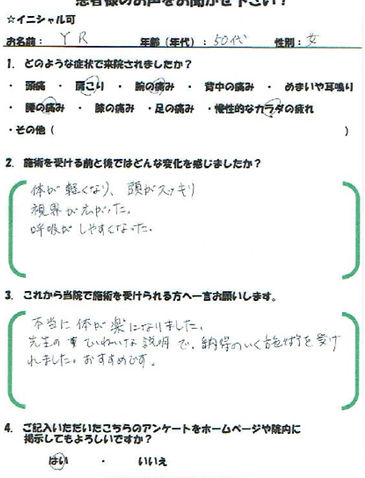 患者様のお声をお聞かせ下さい!
☆イニシャル可
お名前： Y R 年齢（年代）：50代 性別：女
1. どのような症状で来院されましたか？
・ 頭痛 ・ 肩こり ・ 腕の痛み ・ 背中の痛み ・ めまいや耳鳴り
・ 腰の痛み ・ 膝の痛み ・ 足の痛み ・ 慢性的なカラダの疲れ
・その他（ ）
2. 施術を受ける前と後ではどんな変化を感じましたか？
体が軽くなり、頭がスッキリ
視界が広がった。
呼吸がしやすくなった。
3. これから当院で施術を受けられる方へ一言お願いします。
本当に体が楽になりました。
先生のていねいな説明で、納得のいく施術を受け
れました。おすすめです。
4. ご記入いただいたこちらのアンケートをホームページや院内に
掲示してもよろしいですか？
はい ・ いいえ